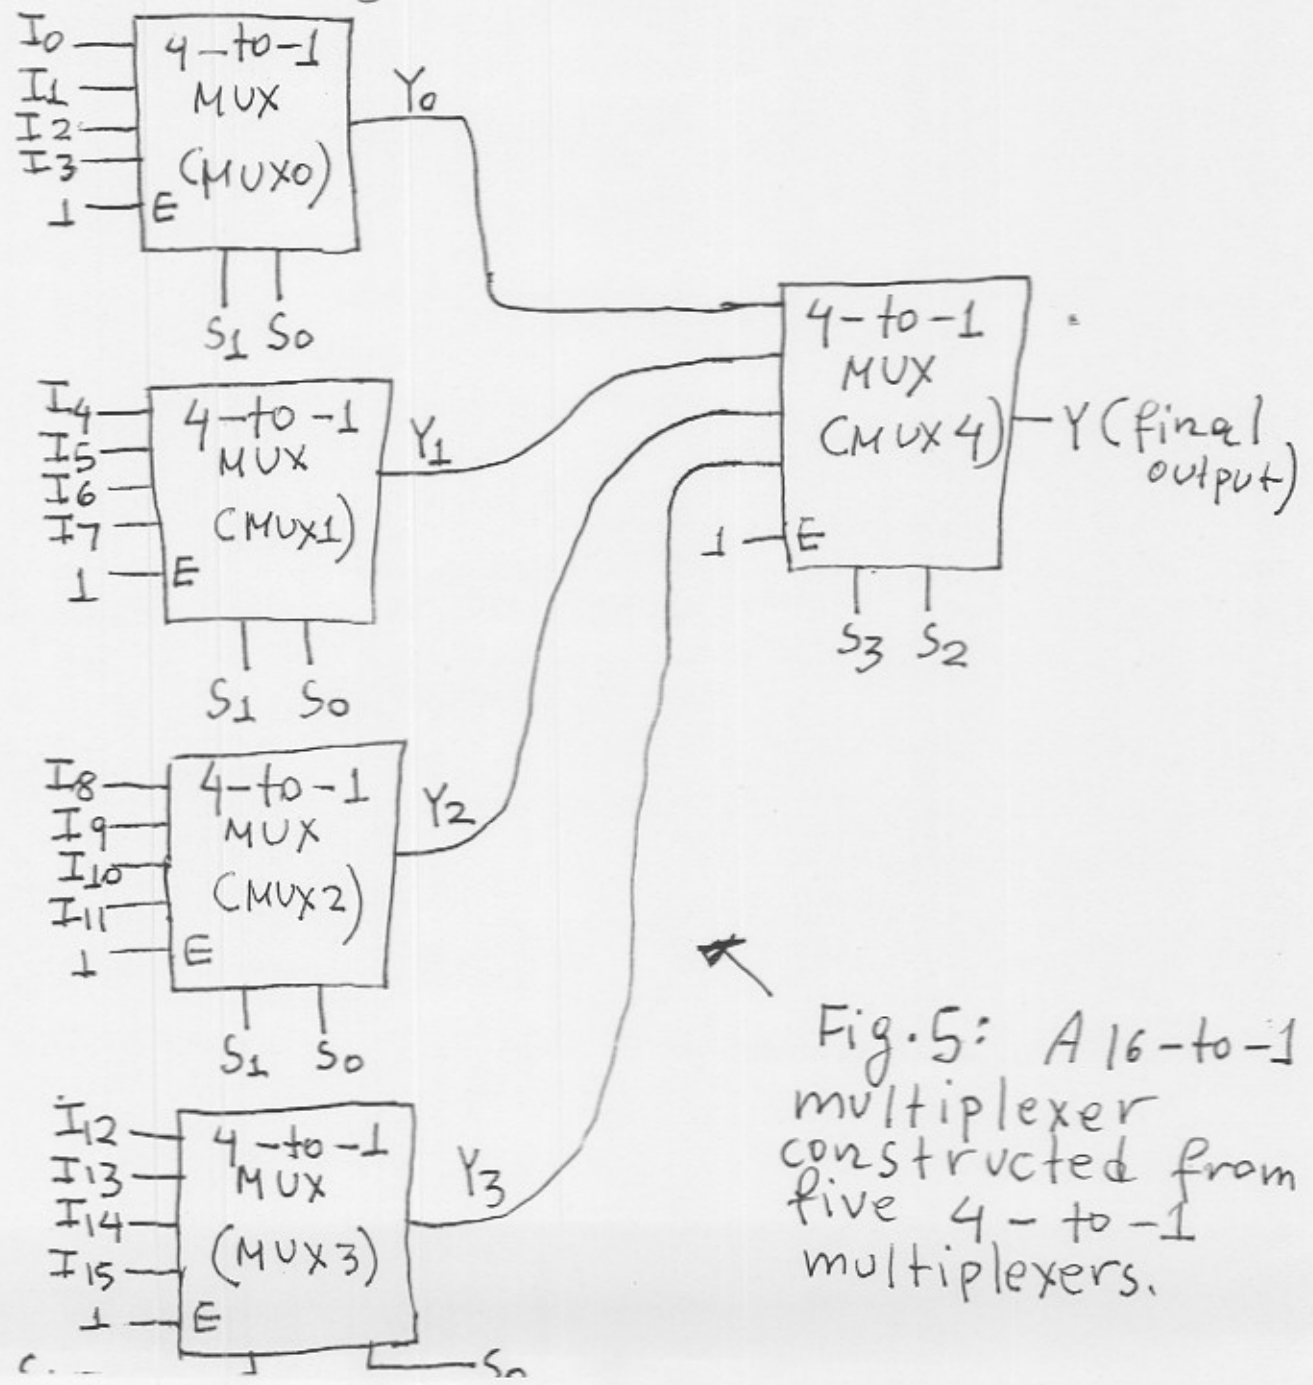 I0
I1
I2
I3
1
4-to-1
MUX
(MUX0)
E
S1 S0
Y0
I4
I5
I6
I7
1
4-to-1
MUX
(MUX1)
E
S1 S0
Y1
I8
I9
I10
I11
1
4-to-1
MUX
(MUX2)
E
S1 S0
Y2
I12
I13
I14
I15
1
4-to-1
MUX
(MUX3)
E
S0
Y3
4-to-1
MUX
(MUX4)
1
E
S3 S2
Y (final
output)
Fig.5: A 16-to-1
multiplexer
constructed from
five 4-to-1
multiplexers.